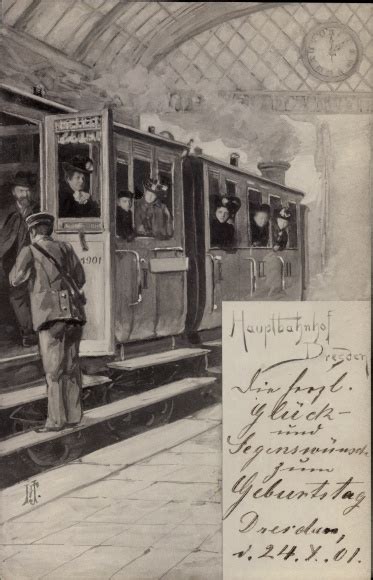 1901
Hauptbahnhof
Dresden
Die herzl.
Glück-
und
Segenswünsche
zum
Geburtstag
Dresden,
d. 24.X.01.